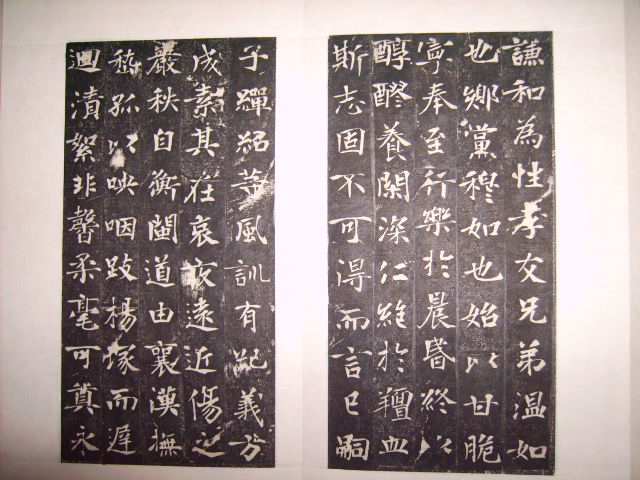 謙和為性孝友兄弟溫如
也鄉黨穆如也始以甘脆
寧奉至行樂於晨昏終以
醇醪養閑深仁維於羶血
斯志固不可得而言已嗣
子紹等風訓有紀義方
成素其在哀夜遠近傷之
嚴秩自衡閩道由襄漢撫
孤以咉咽跂楊塚而遲
迴漬絮非馨柔毫可寘永